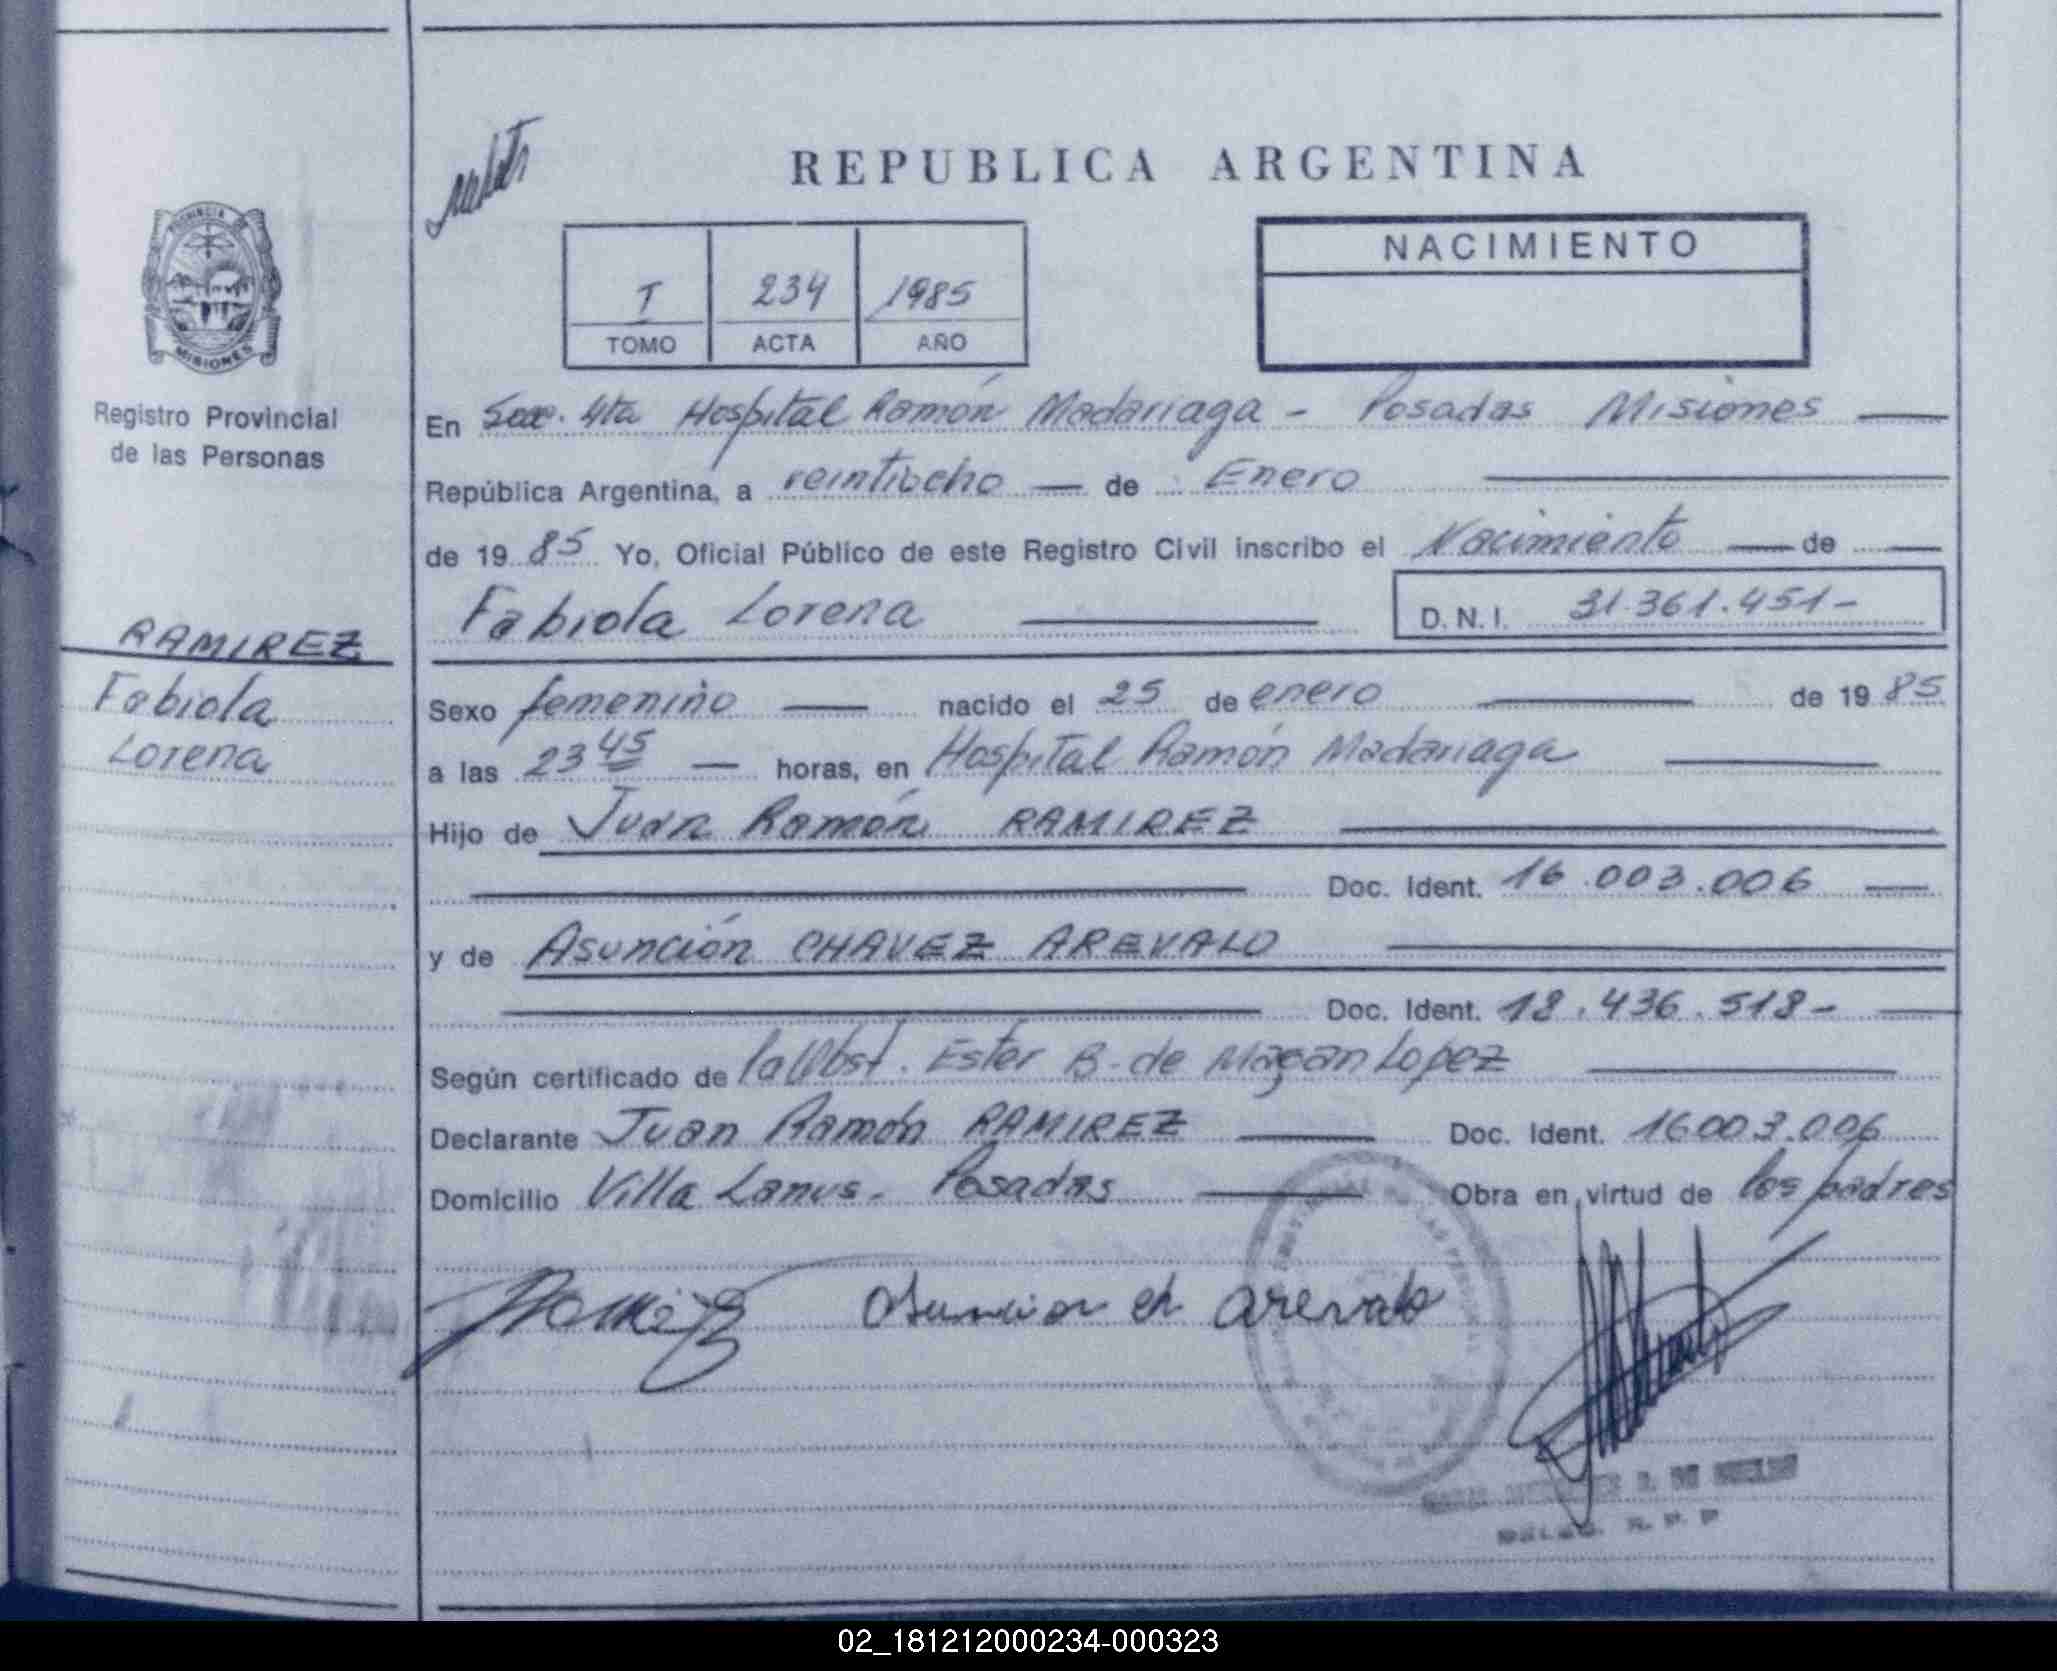 REPUBLICA ARGENTINA
PROVINCIA DE
MISIONES
Registro Provincial
de las Personas
I 234 1985
TOMO ACTA AÑO
NACIMIENTO
En Secc. 4ta Hospital Ramón Madariaga - Posadas Misiones
República Argentina, a veintiocho de Enero
de 19 85 Yo, Oficial Público de este Registro Civil inscribo el Nacimiento de
Fabiola Lorena D.N.I. 31.361.451-
RAMIREZ
Fabiola
Lorena
Sexo femenino nacido el 25 de enero de 19 85
a las 23 45 horas, en Hospital Ramón Madariaga
Hijo de Juan Ramón RAMIREZ
Doc. Ident. 16.003.006
y de Asunción CHAVEZ AREVALO
Doc. Ident. 18.436.518-
Según certificado de la Obst. Ester B. de Magan Lopez
Declarante Juan Ramón RAMIREZ Doc. Ident. 16003.006
Domicilio Villa Lanus. Posadas Obra en virtud de los padres
Asuncion ch Arevalo
02_181212000234-000323